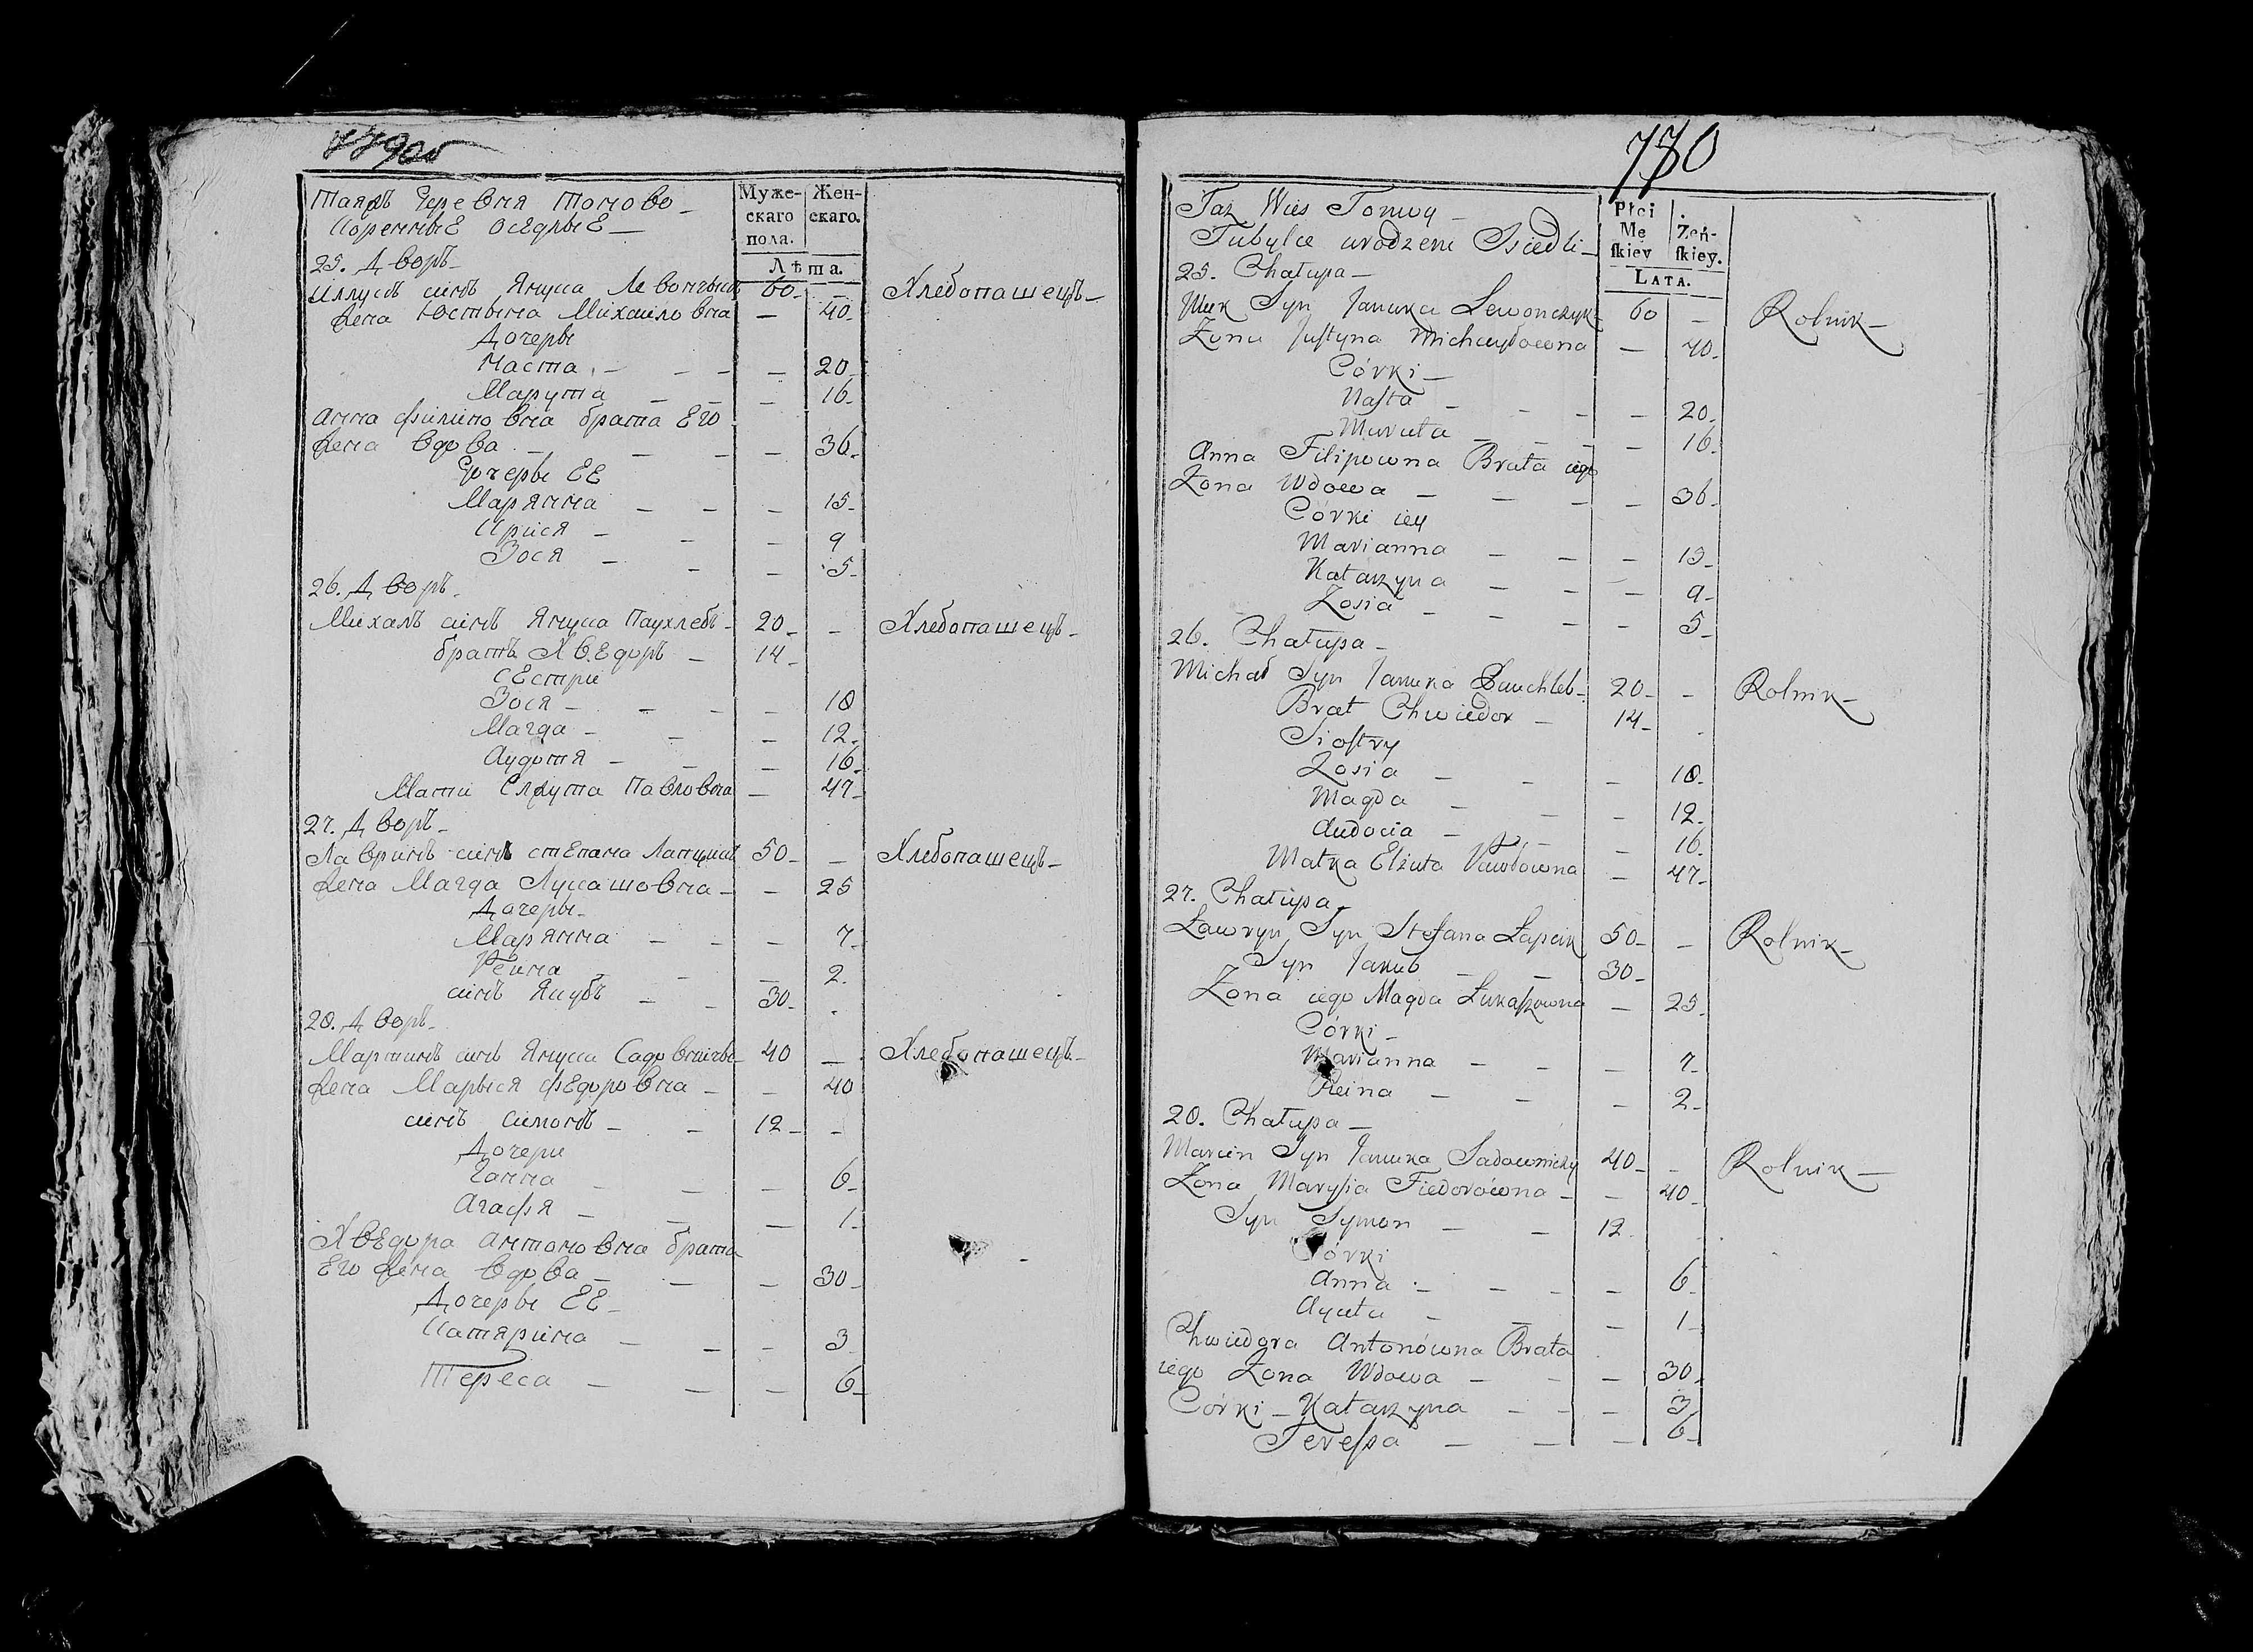 779об
Таяжъ Деревня Тоново
Коренные оседлые
Муже-
скаго
пола.
Жен-
скаго.
Лѣта.
25. Дворъ
синъ Янука Левончыкъ 60 — Хлебопашецъ
жена Юстына Михайловна — 40
Дочеры
Наста — 20
Марута — 16
Анна Филиповна брата Его
жена вдова — 36
Дочеры ЕЕ
Марянна — 15
Крися — 9
Зося — 5
26. Дворъ
Михалъ синъ Янука Паухлебъ 20 — Хлебопашецъ
братъ Хведоръ — 14
сЕстри
Зося — 18
Магда — 12
Аудотя — 16
Мати Елжута Павловна — 47
27. Дворъ
Лавринъ синъ стЕпана Лапцикъ 50 — Хлебопашецъ
жена Магда Лукашовна — 25
Дочеры
Марянна — 7
Реина — 2
синъ Якубъ — 30
28. Дворъ
Мартинъ синъ Янука 40 — Хлебопашецъ
жена Марыся фЕдоровна — 40
синъ Симонъ — 12
Дочери
Ганна — 6
Агафя — 1
ХвЕдора Антоновна брата
Его жена вдова — 30
Дочеры ЕЕ
Катярина — 3
Тереса — 6
780
Taż Wieś Tonwy
Tubylce urodzeni Osiedli
Płci
Mę
ſkiey
Żeń-
ſkiey.
LATA.
25. Chałupa
Syn Januka Lewonczyk 60 — Rolnik
Żona Juſtyna Michayłowna — 40
Córki
Naſta — 20
Maruta — 16
Anna Filipowna Brata iego
Żona Wdowa — 36
Córki iey
Marianna — 15
Katarzyna — 9
Zosia — 5
26. Chałupa
Michał Syn Januka Pauchleb 20 — Rolnik
Brat Chwiedor — 14
Sioſtry
Zosia — 18
Magda — 12
Audocia — 16
Matka Elżuta Pawłówna — 47
27. Chałupa
Ławryn Syn Stefana Łapcik 50 — Rolnik
Syn Jakub — 30
Żona iego Magda Łukaſzowna — 25
Córki
Marianna — 7
Reina — 2
28. Chałupa
Marcin Syn Januka Sadownicky 40 — Rolnik
Żona Maryſia Fiedorówna — 40
Syn Symon — 12
Córki
Anna — 6
Agata — 1
Chwiedora Antonówna Brata
iego Żona Wdowa — 30
Córki — Katarzyna — 3
Tereſsa — 6